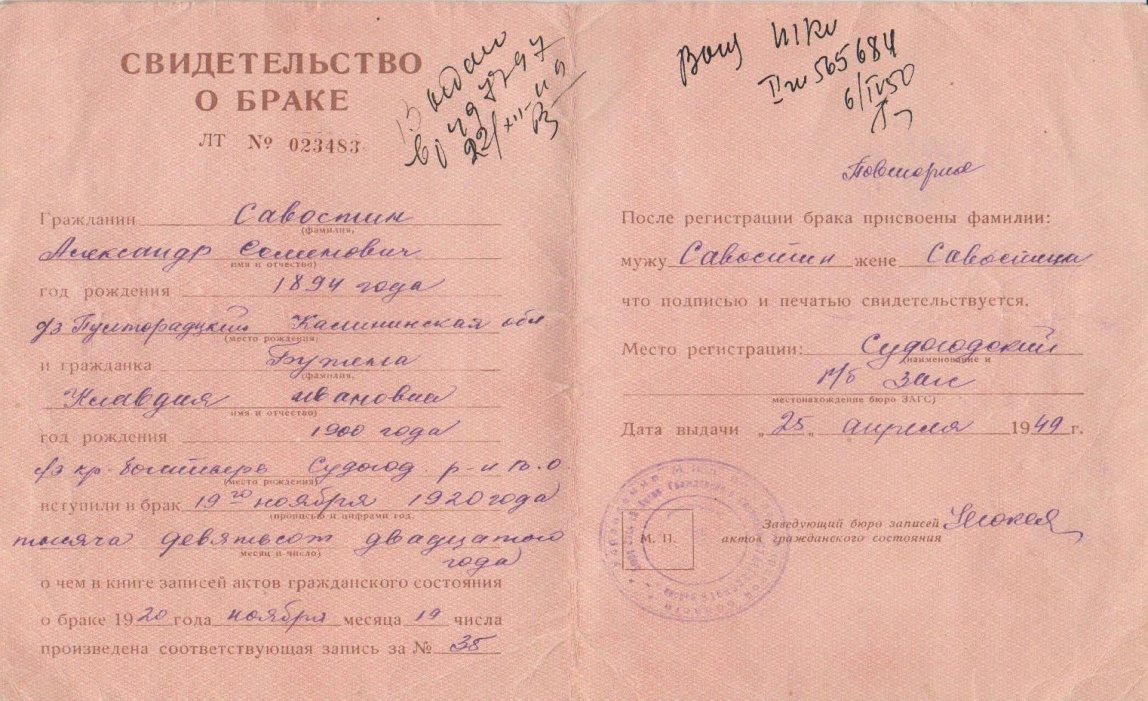 СВИДЕТЕЛЬСТВО
О БРАКЕ
ЛТ № 023483
22/XII-49
Гражданин Савостин
(фамилия,
Александр Семенович
имя и отчество)
год рождения 1894 года
Калининская обл
(место рождения)
и гражданка
(фамилия,
Клавдия Ивановна
имя и отчество)
год рождения 1900 года
Судогод. р-н В.О
(место рождения)
вступили в брак 19го ноября 1920 года
(прописью и цифрами год,
тысяча девятьсот двадцатого
месяц и число)
года
о чем в книге записей актов гражданского состояния
о браке 1920 года ноября месяца 19 числа
произведена соответствующая запись за № 38
565684
6/IV50
Повторное
После регистрации брака присвоены фамилии:
мужу Савостин жене Савостина
что подписью и печатью свидетельствуется.
Место регистрации: Судогодский
(наименование и
р/б загс
местонахождение бюро ЗАГС)
Дата выдачи „25„ апреля 1949 г.
Заведующий бюро записей
М. П. актов гражданского состояния